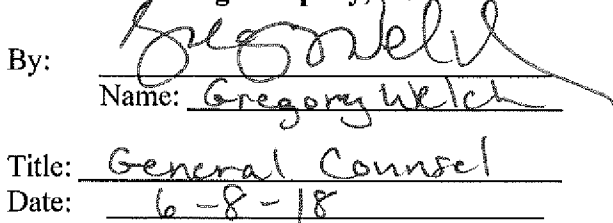 By: Greg Welch
Name: Gregory Welch
Title: General Counsel
Date: 6-8-18